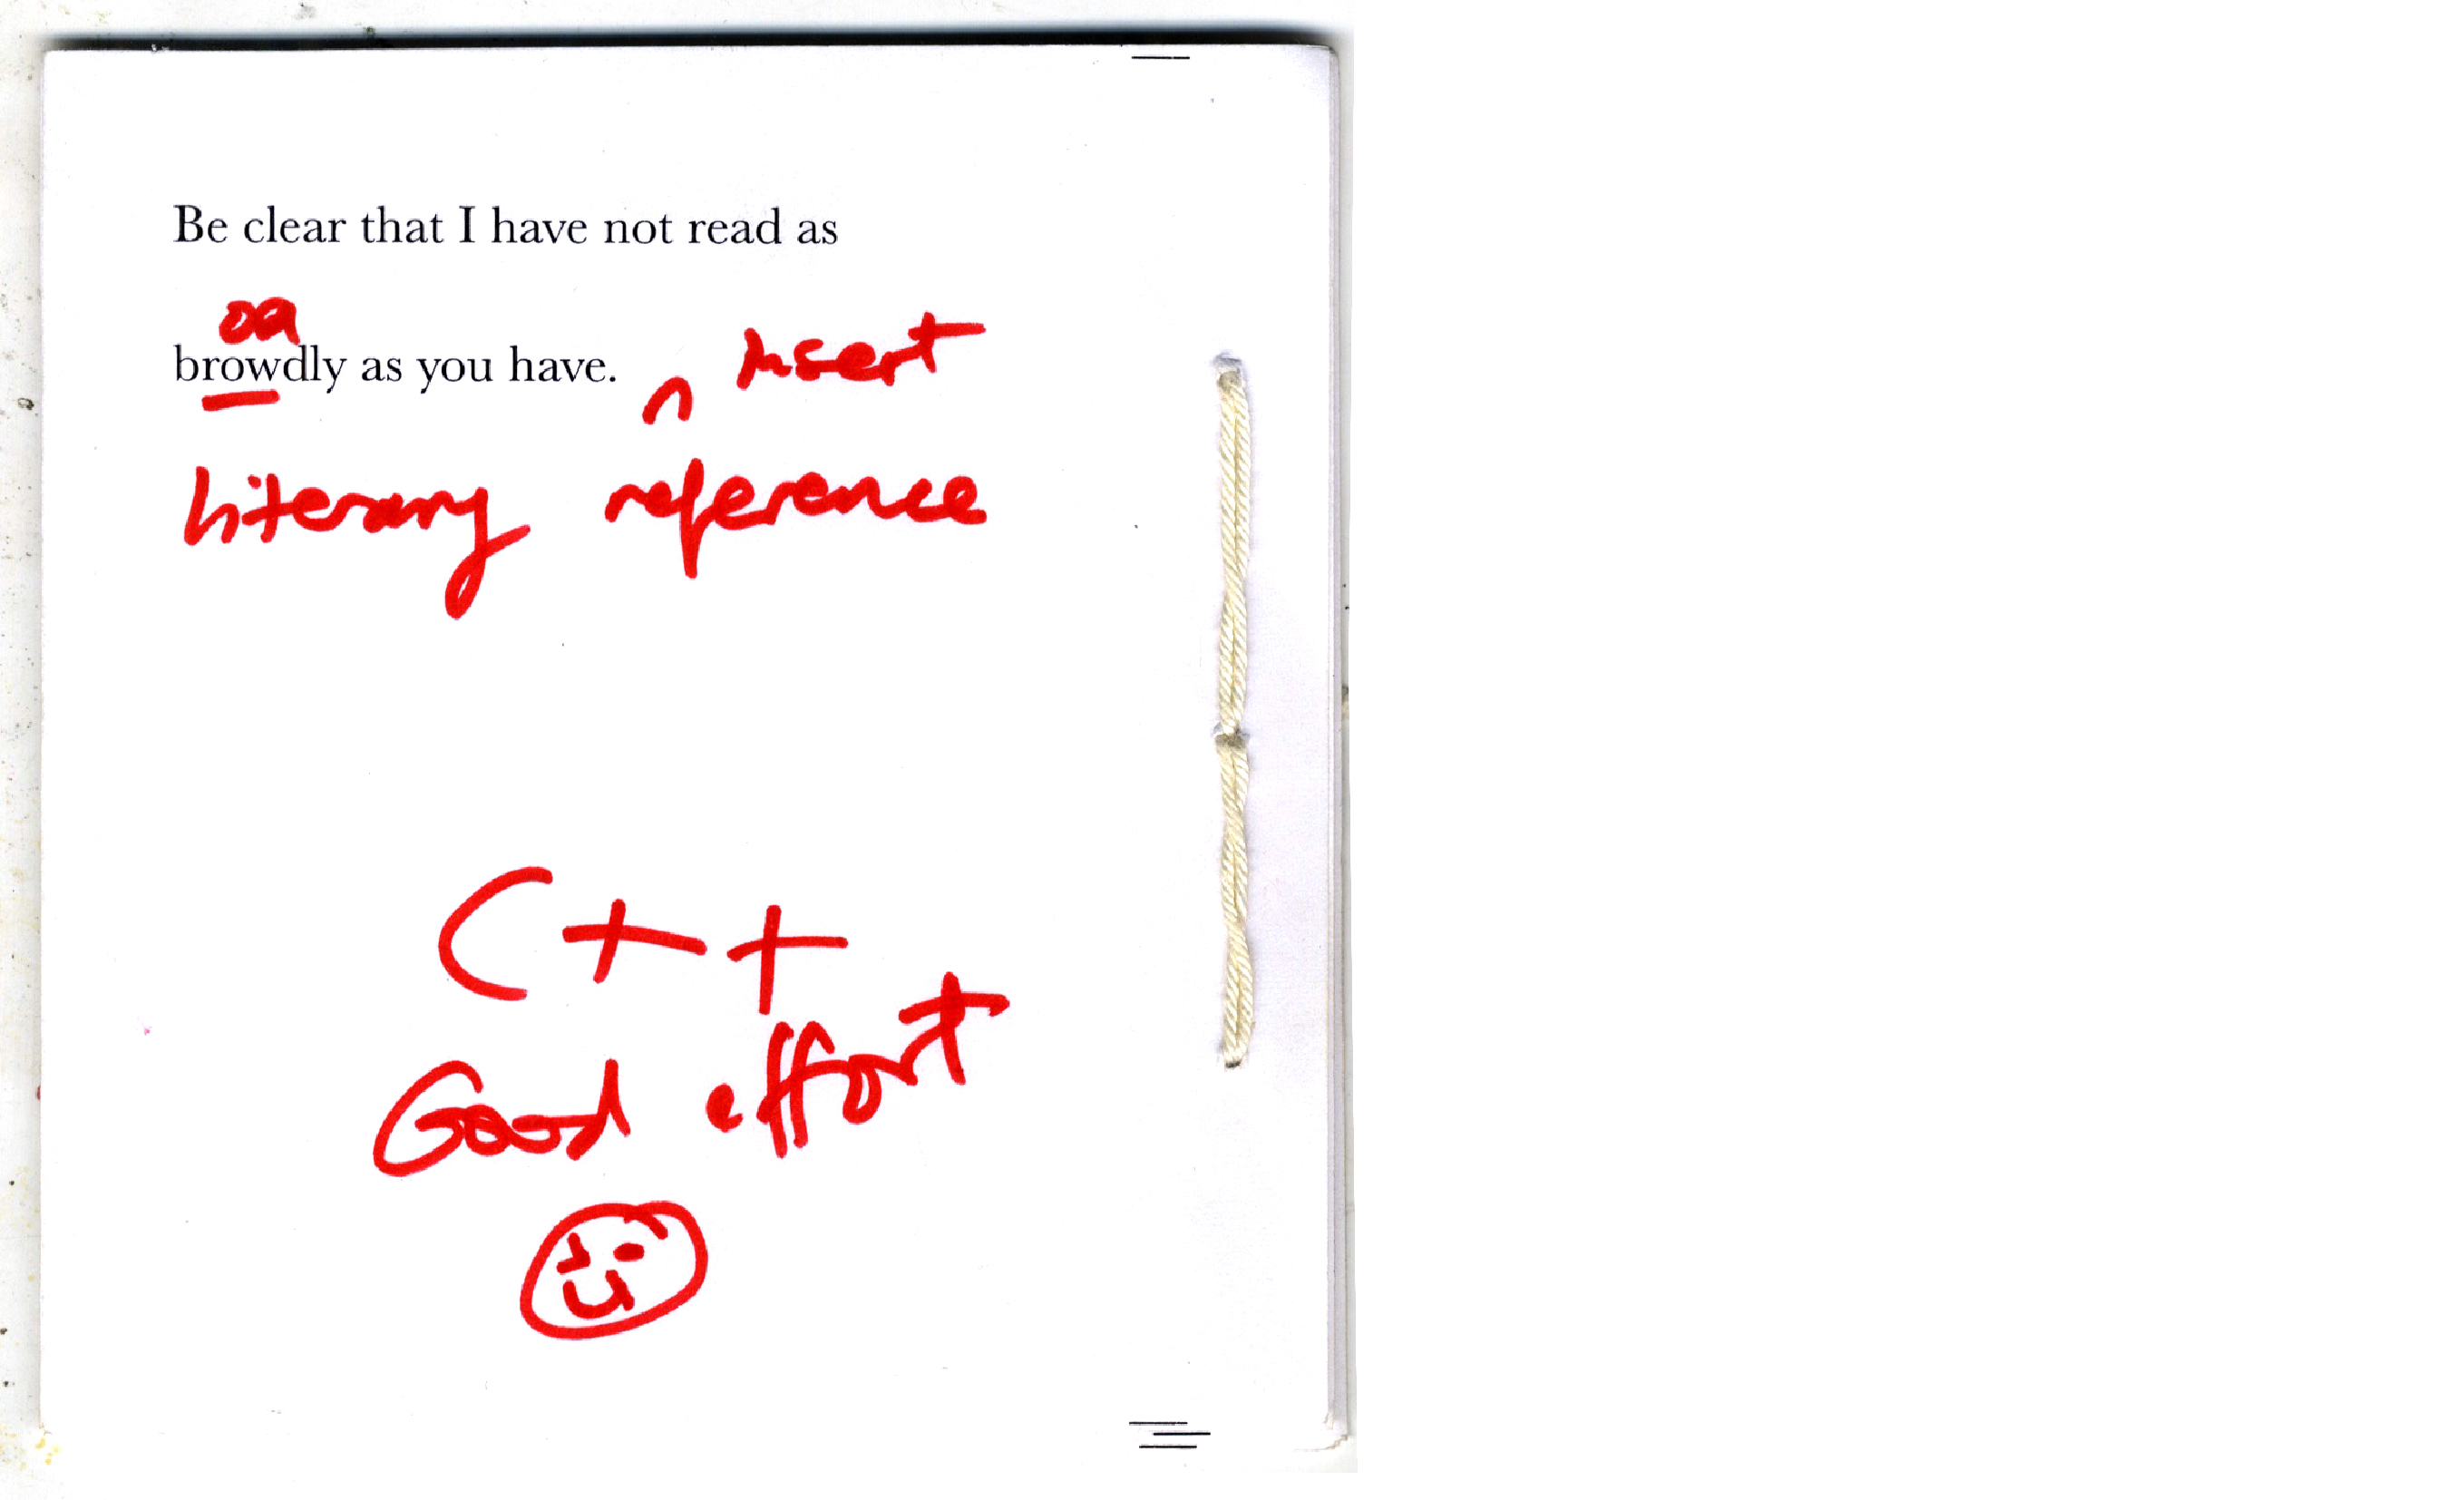 Be clear that I have not read as
oa
browdly as you have. insert
literary reference
C++
Good effort